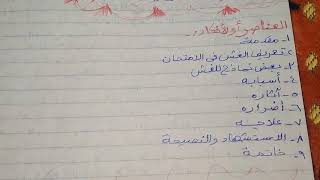 العناصر أو الأفكار:
١- مقدمة
٢- تعريف الغش في الامتحان
٣- بعض نماذج للغش
٤- أسبابه
٥- آثاره
٦- أضراره
٧- علاجه
٨- الاستشهاد والنصيحة
٩- خاتمة